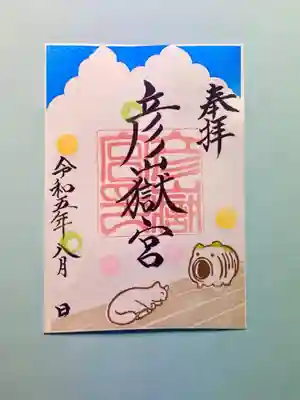 奉拝
彦嶽宮
令和五年八月 日